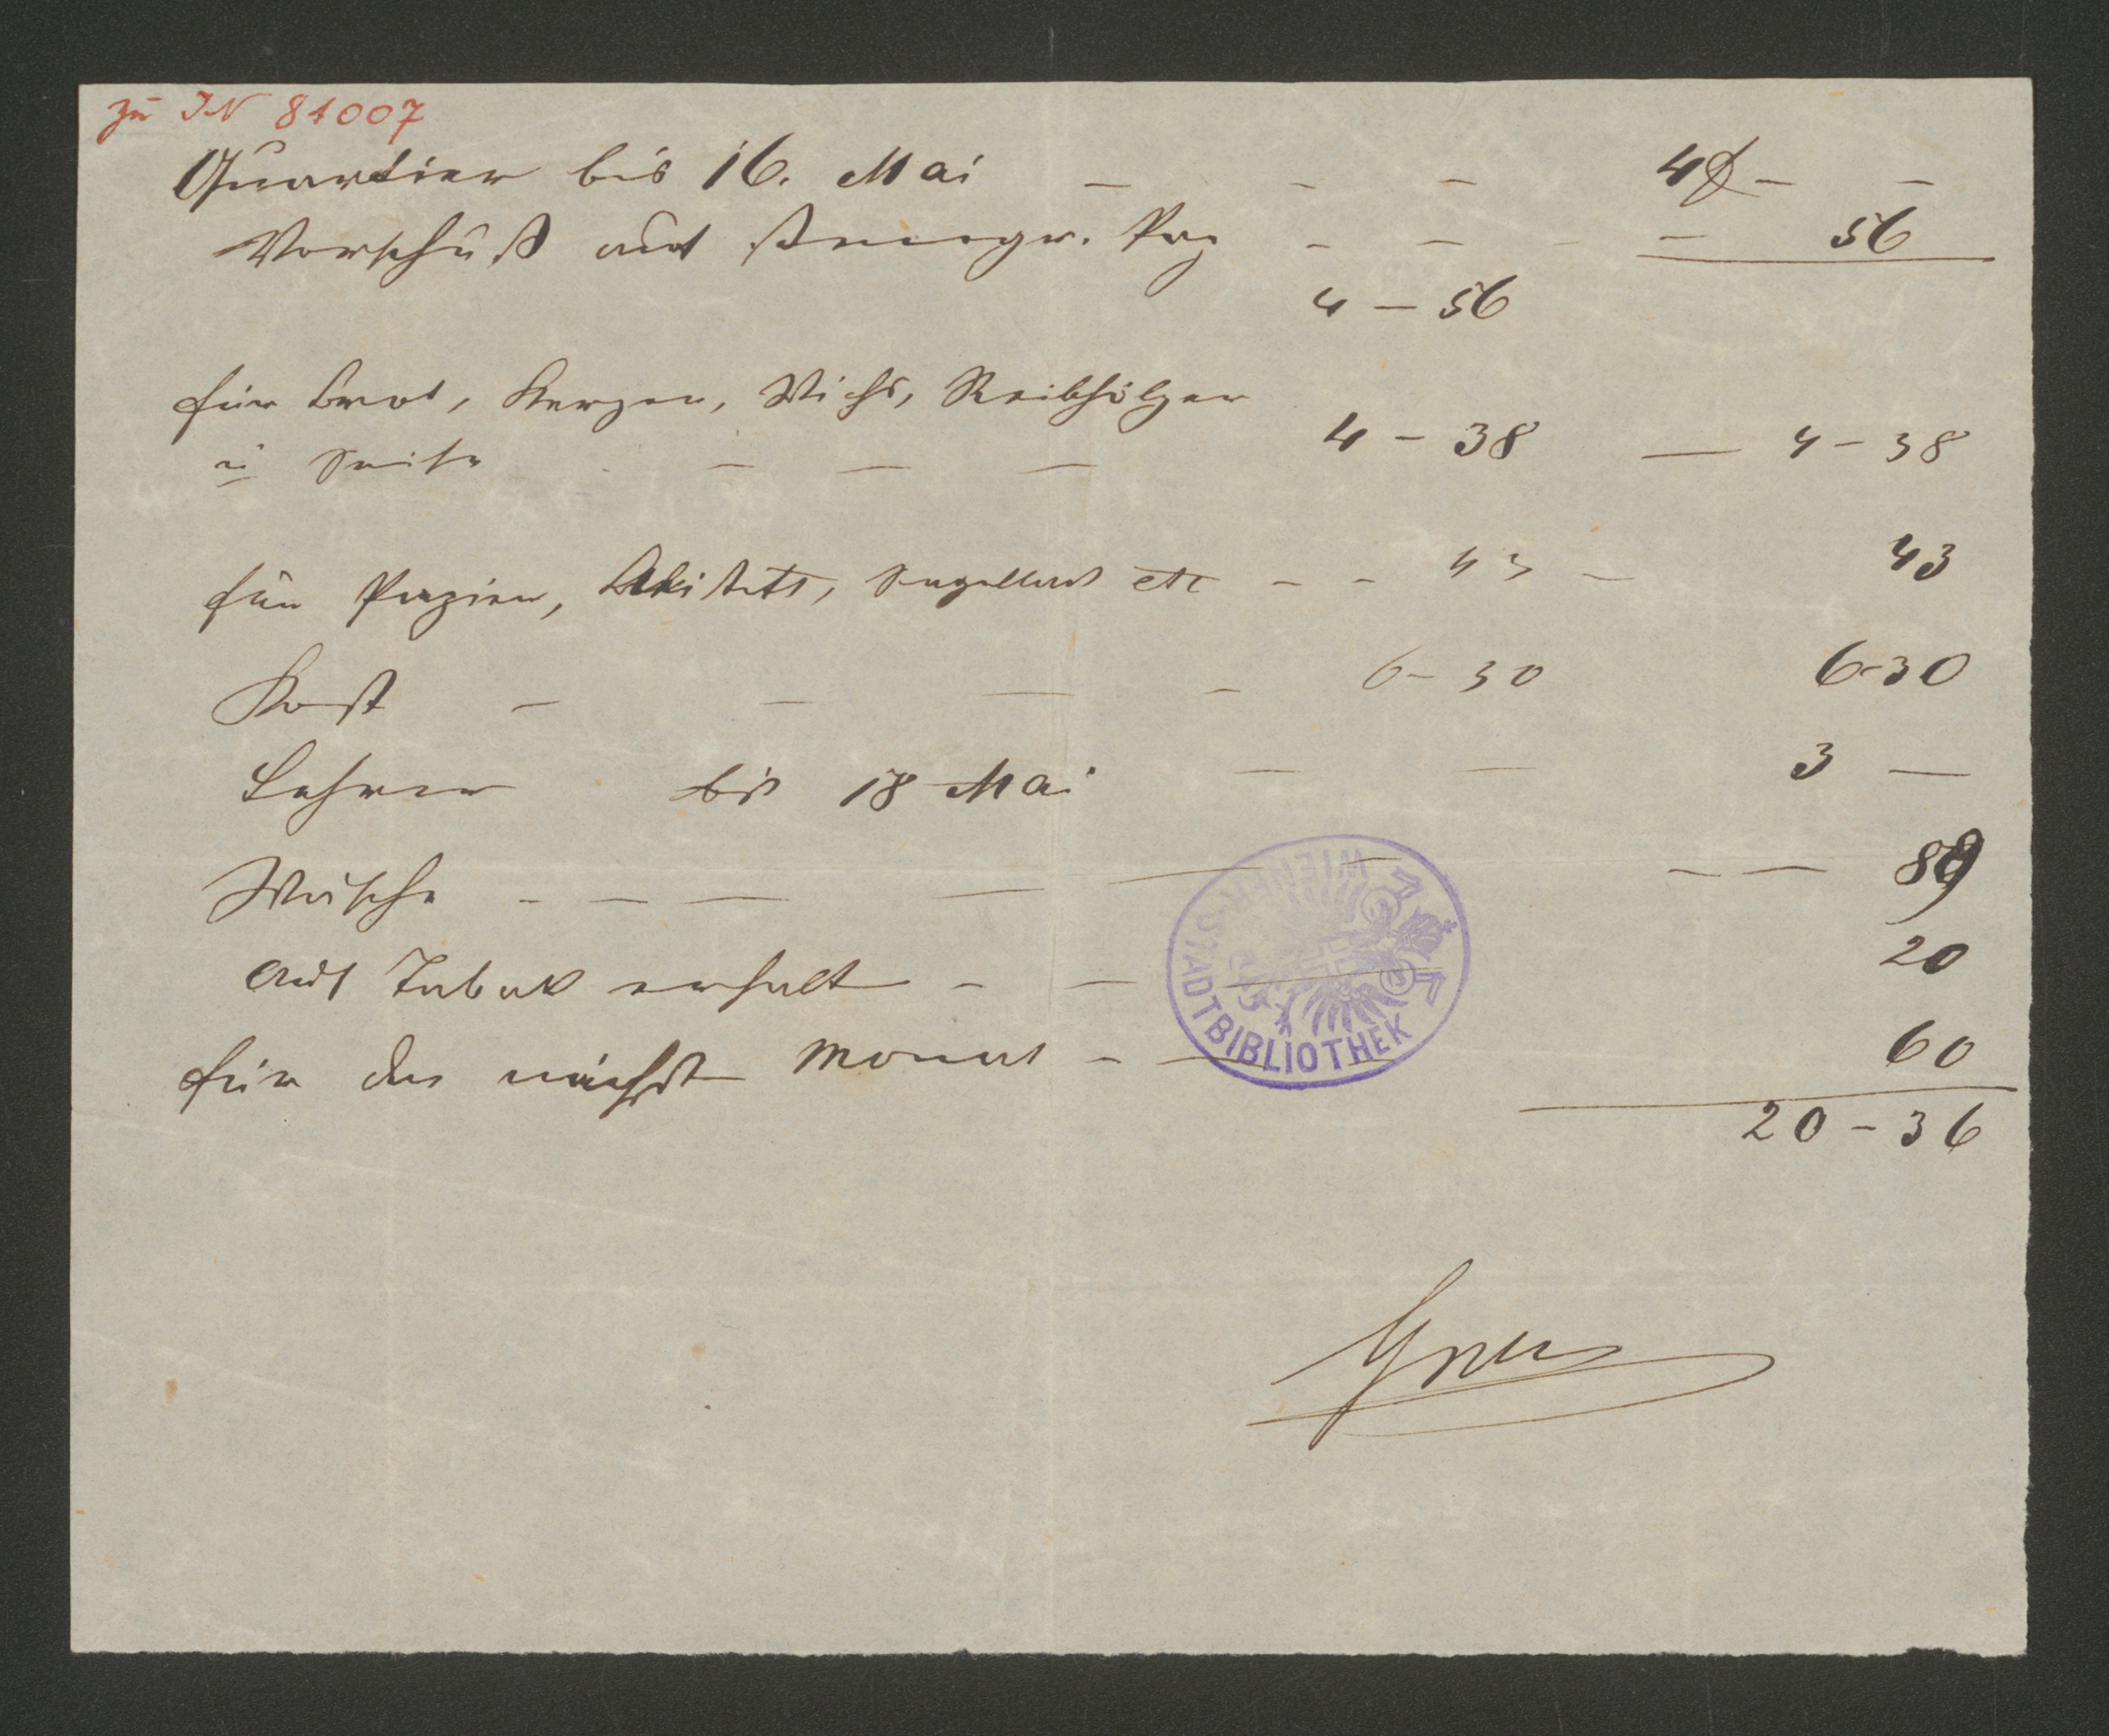 zu IN 81007
Quartier bis 16. Mai — — — 4 f — —
Vorschuß auf stenogr. — — — — 56
4 — 56
für Brot, Kerzen, Wichs, Reibhölzer
u Seife — — — 4 - 38 — 4 - 38
für Papier, Siegellack etc — — 43 — 43
Kost — — — — 6 - 30 6-30
Lehrer bis 18 Mai — — 3 —
Wäsche — — — — — — — — 89
auf Tabak erhalt — — — 20
für das nächste Monat — — 60
20 - 36
WIENER STADTBIBLIOTHEK